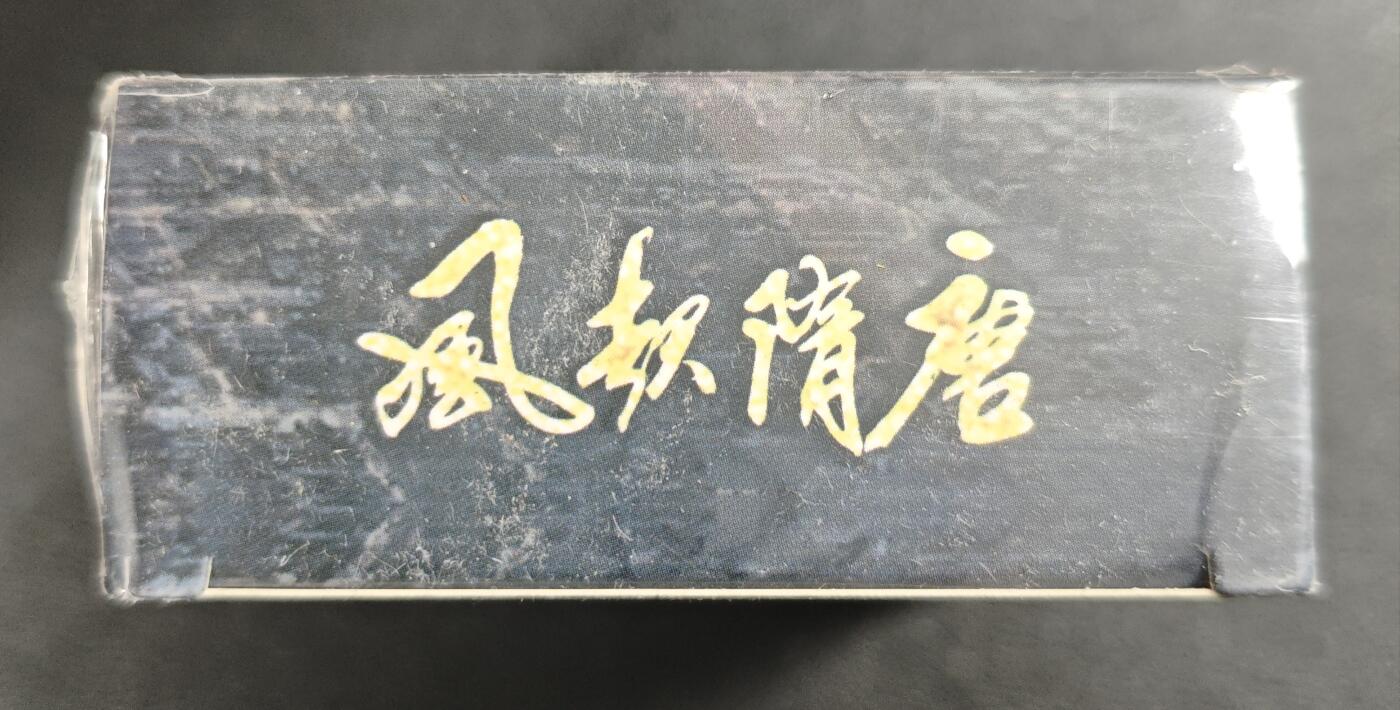 風起隋唐